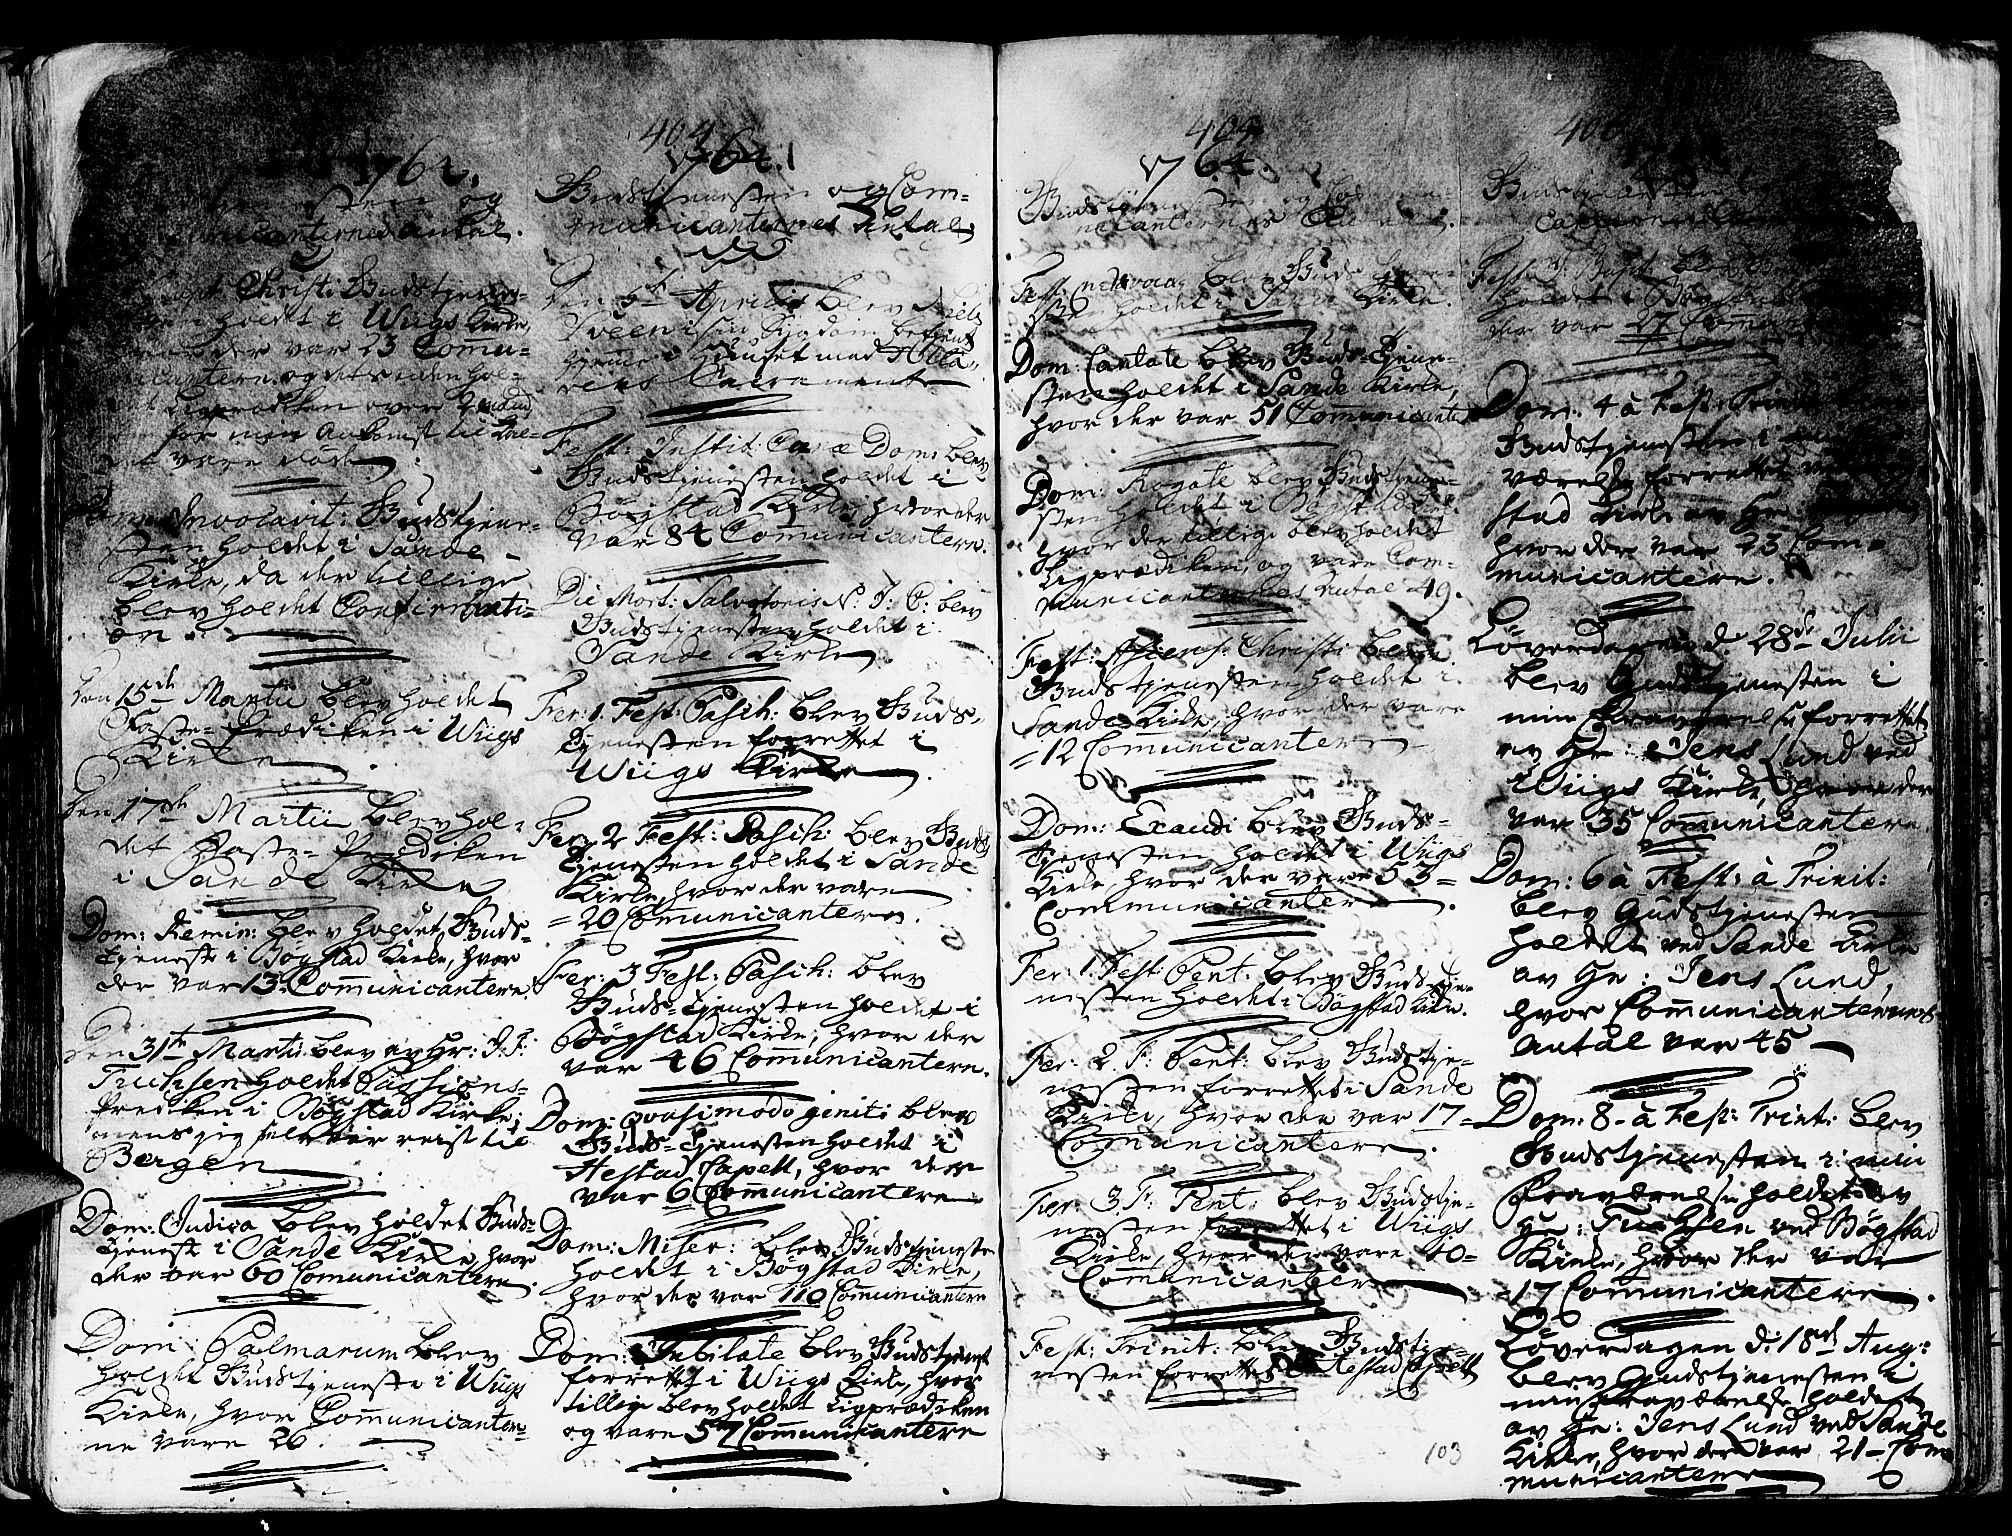 1764.
og
Communicanternes antal.
Christi Gudstjene-
holdet i Wiigs Kirke,
hvor der var 23 Commu-
nicantere. og
Ligprædiken over 2
for min Ankomst til Kal-
det vare død
Dom: Invocavit: Gudstjene-
sten holdet i Sande
Kirke, da der tillige
blev holdet Confirmati-
on.
Den 15de Martii blev holdet
Faste-Prædiken i Wiigs
Kirke
Den 17de Martii blev hol-
det Faste-Prædiken
i Sande Kirke
Dom: Remin: blev holdet Guds-
tjeneste i Bøgstad Kirke, hvor
der var 13 Communicantere.
Den 31te Martii blev av Hr: J: J:
Fuchsen holdet Passions-
Prediken i Bøgstad Kirke;
mens jeg selv var reist til
Bergen
Dom: Judica blev holdet Guds-
tjeneste i Sande Kirke, hvor
der var 60 Communicantere.
Dom: Palmarum blev
holdt Gudstjeneste i Wiigs
Kirke, hvor Communicanter-
ne vare 26.
404
1764.
Gudstjenesten og Com-
municanternes Antal.
Den 5te Aprilis blev Niels
Sveen i sin Sygdom betjent
hjemme i Huuset med Alta-
rens Sacramente
Fest: Instit: Cænæ Dom: blev
Gudstjenesten holdet i
Bøgstad Kirke, hvor der
var 84 Communicantere.
Die Mort: Salvatoris N: J: C: blev
Gudstjenesten holdet i
Sande Kirke.
Fer: 1. Fest: Pasch: blev Guds-
tjenesten forrettet i
Wiigs Kirke.
Fer: 2 Fest: Pasch: blev Guds-
tjenesten holdet i Sande
Kirke, hvor der vare
=20 Communicantere.
Fer: 3 Fest: Pasch: blev
Guds-tjenesten holdet i
Bøgstad Kirke, hvor der
var 46 Communicantere.
Dom: Qvasimodo geniti blev
Guds-tjenesten holdet i
Hestad Capell, hvor der
var 6 Communicantere
Dom: Miser: blev Gudstjeneste
holdet i Bøgstad Kirke,
hvor der var 110 Communicantere
Dom: Jubilate blev Gudstjenest
forrettet i Wiigs Kirke, hvor
tillige blev holdet Ligprædiken
og vare 57 Communicantere
404
1764.
Gudstjenesten og Commu-
nicanternes Antal.
blev Guds-tjene-
sten holdet i Kirke.
Dom: Cantate blev Guds-tjene-
sten holdet i Sande Kirke,
hvor der var 51 Communicantere
Dom: Rogate blev Gudstjene-
sten holdet i Bøgstad
hvor der tillige blev holdet
Ligprædiken, og vare Com-
municanternes Antal 49.
Fest: Ascens: Christi blev
Gudstjenesten holdet i
Sande Kirke, hvor der vare
=12 Communicantere
Dom: Exaudi blev Guds-
tjenesten holdet i Wiigs
Kirke, hvor der vare 53=
Communicantere.
Fer: 1. Fest: Pent: blev Guds-tje-
nesten holdet i Bøgstad Kirke.
Fer: 2. F: Pent: blev Gudstje-
nesten forrettet i Sande
Kirke, hvor der var 17=
Communicantere.
Fer: 3. F: Pent: blev Gudstje-
nesten forrettet i Wiigs
Kirke, hvor der vare 40=
Communicantere
Fest: Trinit: blev Gudstje-
nesten forrettet i Hestad Capell
103
Gudstjenesten
blev
holdet i Bøgstad
der var 27 Commu
Dom: 4 à Fest: Trinit:
Gudstjenesten i min
værelse forrettet ved
stad Kirke av Hr:
hvor der var 23 Com-
municantere.
Løverdagen d. 28de Julii
blev Gudstjenesten i
min Fraværelse forrettet
av Hr: Jens Lund ved
Wiigs Kirke, hvor der
var 35 Communicantere.
Dom: 6 à Fest: à Trinit:
blev Gudstjenesten
holdet ved Sande Kirke
av Hr: Jens Lund,
hvor Communicanternes
Antal var 45
Dom: 8- à Fest: Trint: blev
Gudstjenesten i min
Fraværelse holdet av
Hr: Fuchsen ved Bøgstad
Kirke, hvor der var
=17 Communicantere.
Løverdagen d. 18de Aug:
blev Gudstjenesten i
min Fraværelse holdet
av Hr: Jens Lund ved Sande
Kirke, hvor der var 21 - Com-
municantere